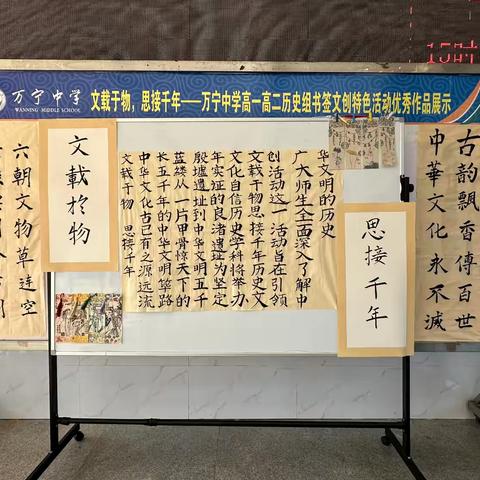 15时
万宁中学
WANNING MIDDLE SCHOOL
文载于物，思接千年——万宁中学高一高二历史组书签文创特色活动优秀作品展示
六朝文物草连空
文載於物
文载于物 思接千年
中华文化古已有之源远流
长五千年的中华文明筚路
蓝缕从一片甲骨惊天下的
殷墟遗址到中华文明五千
年实证的良渚遗址为坚定
文化自信历史学科将举办
文载于物思接千年历史文
创活动这一活动旨在引领
广大师生全面深入了解中
华文明的历史
思接千年
古韵飘香傳百世
中華文化永不滅